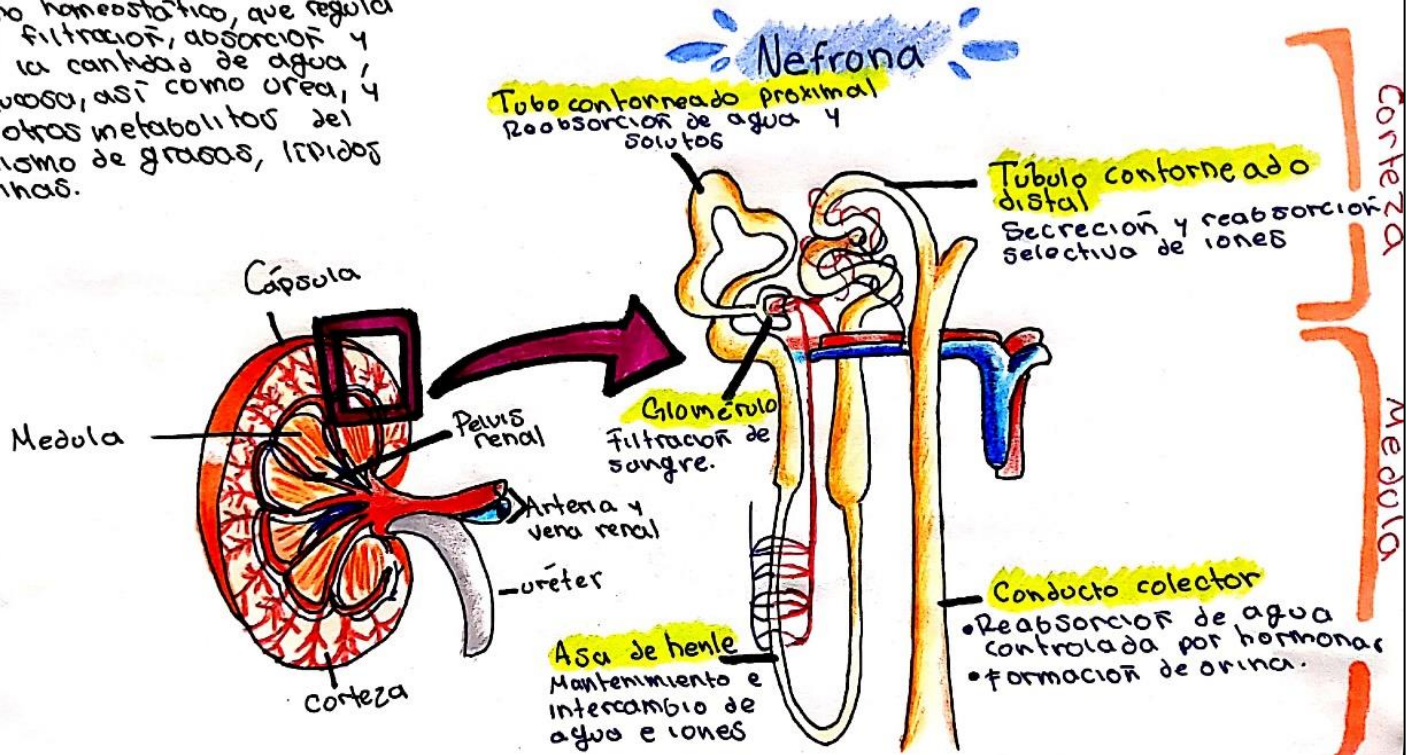 no homeostático, que regula
filtración, absorción y
la cantidad de agua,
ucosa, así como urea, y
otros metabolitos del
ismo de grasas, lípidos
inas.
Nefrona
Tubo contorneado proximal
Reabsorción de agua y
solutos
Túbulo contorneado
distal
Secreción y reabsorción
selectiva de iones
Corteza
Cápsula
Medula
Pelvis
renal
Glomérulo
Filtración de
sangre.
Arteria y
vena renal
uréter
corteza
Asa de henle
Mantenimiento e
intercambio de
agua e iones
Conducto colector
•Reabsorción de agua
controlada por hormonas
•Formación de orina.
Medula